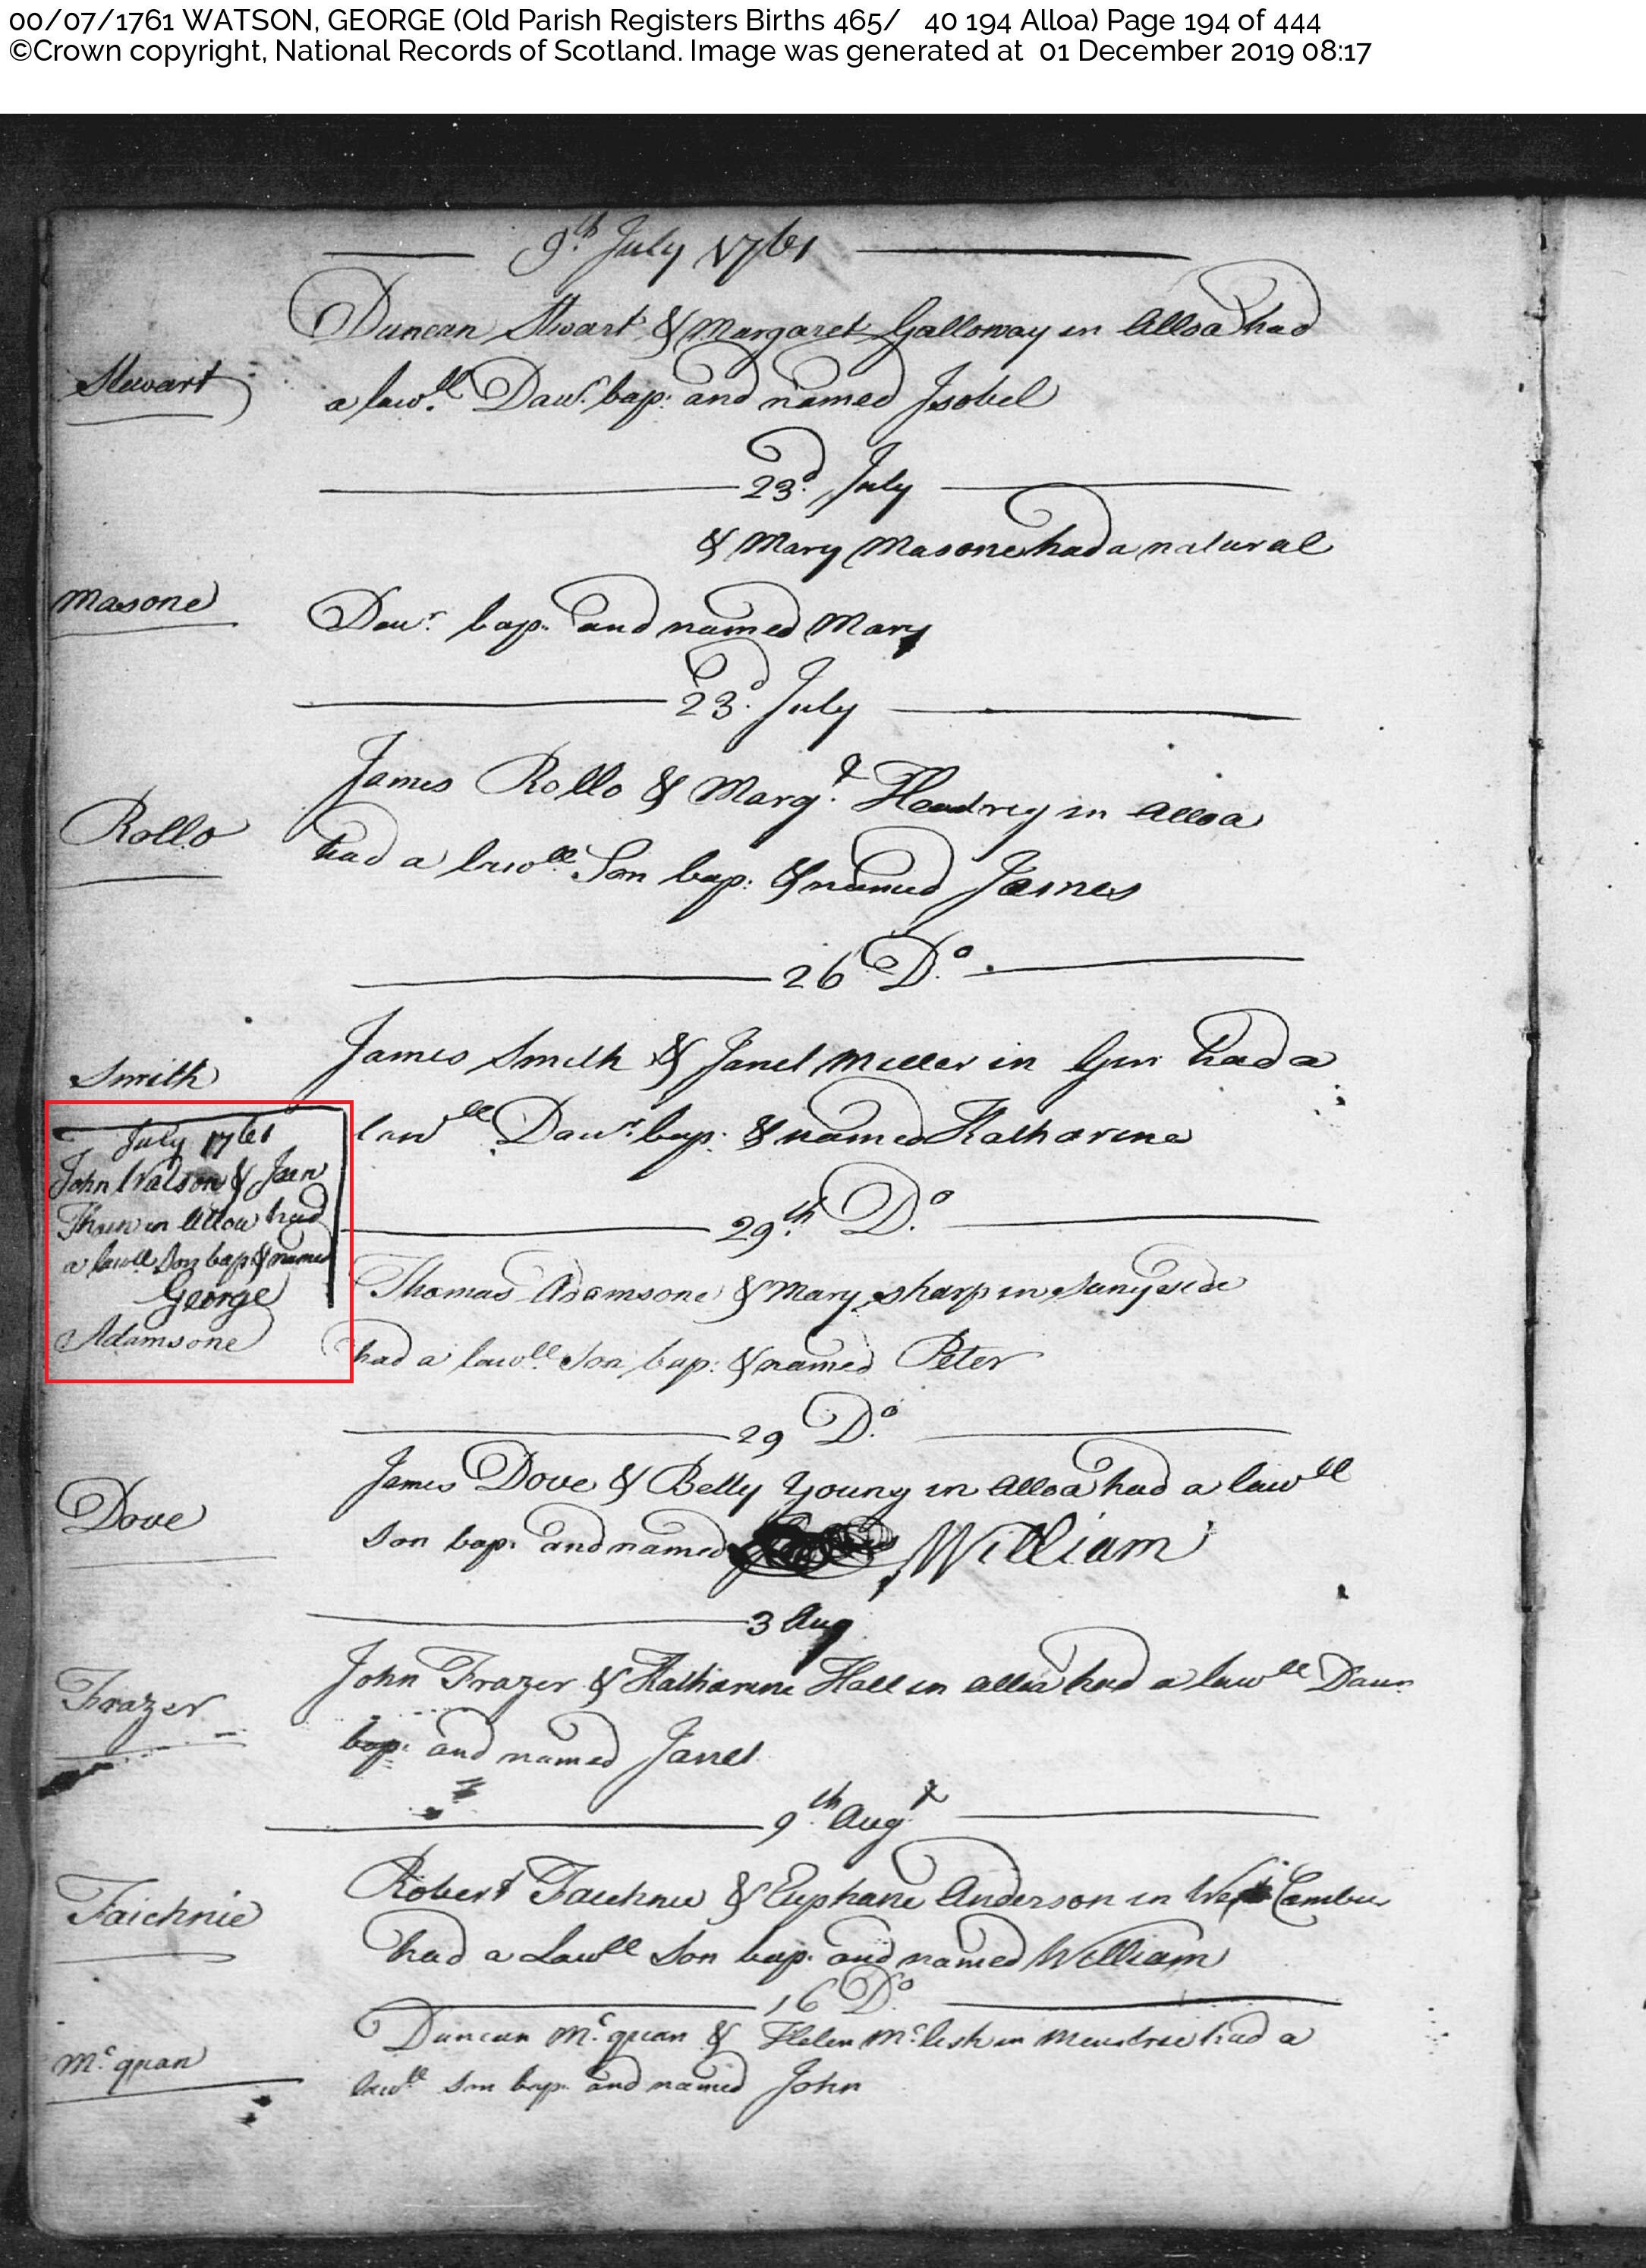 00/07/1761 WATSON, GEORGE (Old Parish Registers Births 465/ 40 194 Alloa) Page 194 of 444
©Crown copyright, National Records of Scotland. Image was generated at 01 December 2019 08:17
9th July 1761
Duncan Stwart & Margaret Galloway in Alloa had
Stewart
a lawll Daur bap: and named Isobel
23d July
& Mary Masone had a natural
Masone
Daur bap: and named Mary
23d July
James Rollo & Margt in Alloa
Rollo
had a lawll Son bap: & named James
26 Do.
James Smith & Janet Miller in had a
Smith
lawll Daur bap: & named Katharine
July 1761
John Watson & Jean
in Alloa had
a lawll Son bap & named
George
29th Do
Thomas Adamsone & Mary Sharp in Sunyside
Adamsone
had a lawll Son bap: & named Peter
29 Do
James Dove & Betty Young in Alloa had a lawll
Dove
Son bap: and named William
3 Aug
John Frazer & Katharine Hall in Alloa had a lawll Daur
Frazer
bap: and named Janet
9th Augt
Robert Faichnie & Euphane Anderson in West Cambus
Faichnie
had a Lawll Son bap: and named William
16 Do
Duncan Mcquan & Helen Mcleish in Menstrie had a
Mcquan
lawll Son bap: and named John